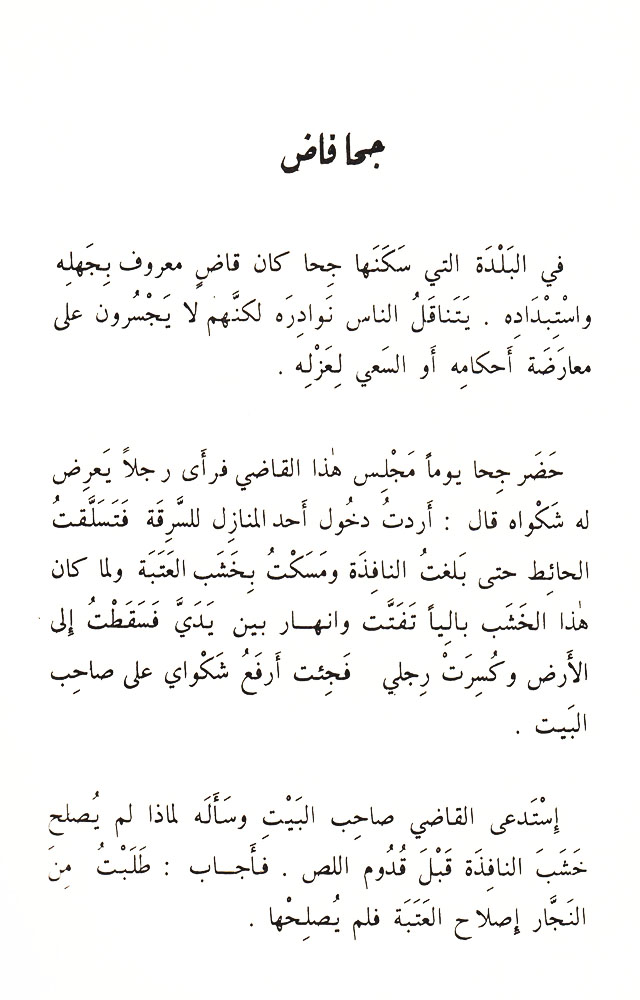 جحا فاض
في البَلْدَة التي سَكَنَها جِحا كان قاضٍ معروف بِجَهلِه
واسْتِبْدَادِه . يَتَناقَلُ الناس نَوادِرَه لكنَّهم لا يَجْسُرون على
معارَضَة أَحكامِه أَو السَعي لِعَزْلِه .
حَضَر جِحا يوماً مَجْلِس هٰذا القاضي فرأَى رجلاً يَعرِض
له شَكْواه قال : أَردتُ دخُول أَحد المنازِل للسَّرِقَة فَتَسَلَّقتُ
الحائِط حتى بَلغتُ النافِذَة ومَسَكْتُ بِخَشَب العَتَبَة ولما كان
هٰذا الخَشَب بالِياً تَفَتَّت وانهـار بين يَدَيَّ فَسَقَطْتُ إِلى
الأَرض وكُسِرَتْ رِجلي فَجِئت أَرفَعُ شَكْواي على صاحِب
البَيت .
إِسْتَدعى القاضي صاحِب البَيْتِ وسَأَلَه لماذا لم يُصلح
خَشَبَ النافِذَة قَبْلَ قُدُوم اللص . فأَجـاب : طَلَبْتُ مِنَ
النَجَّار إِصلاح العَتَبَة فلم يُصلِحْها .